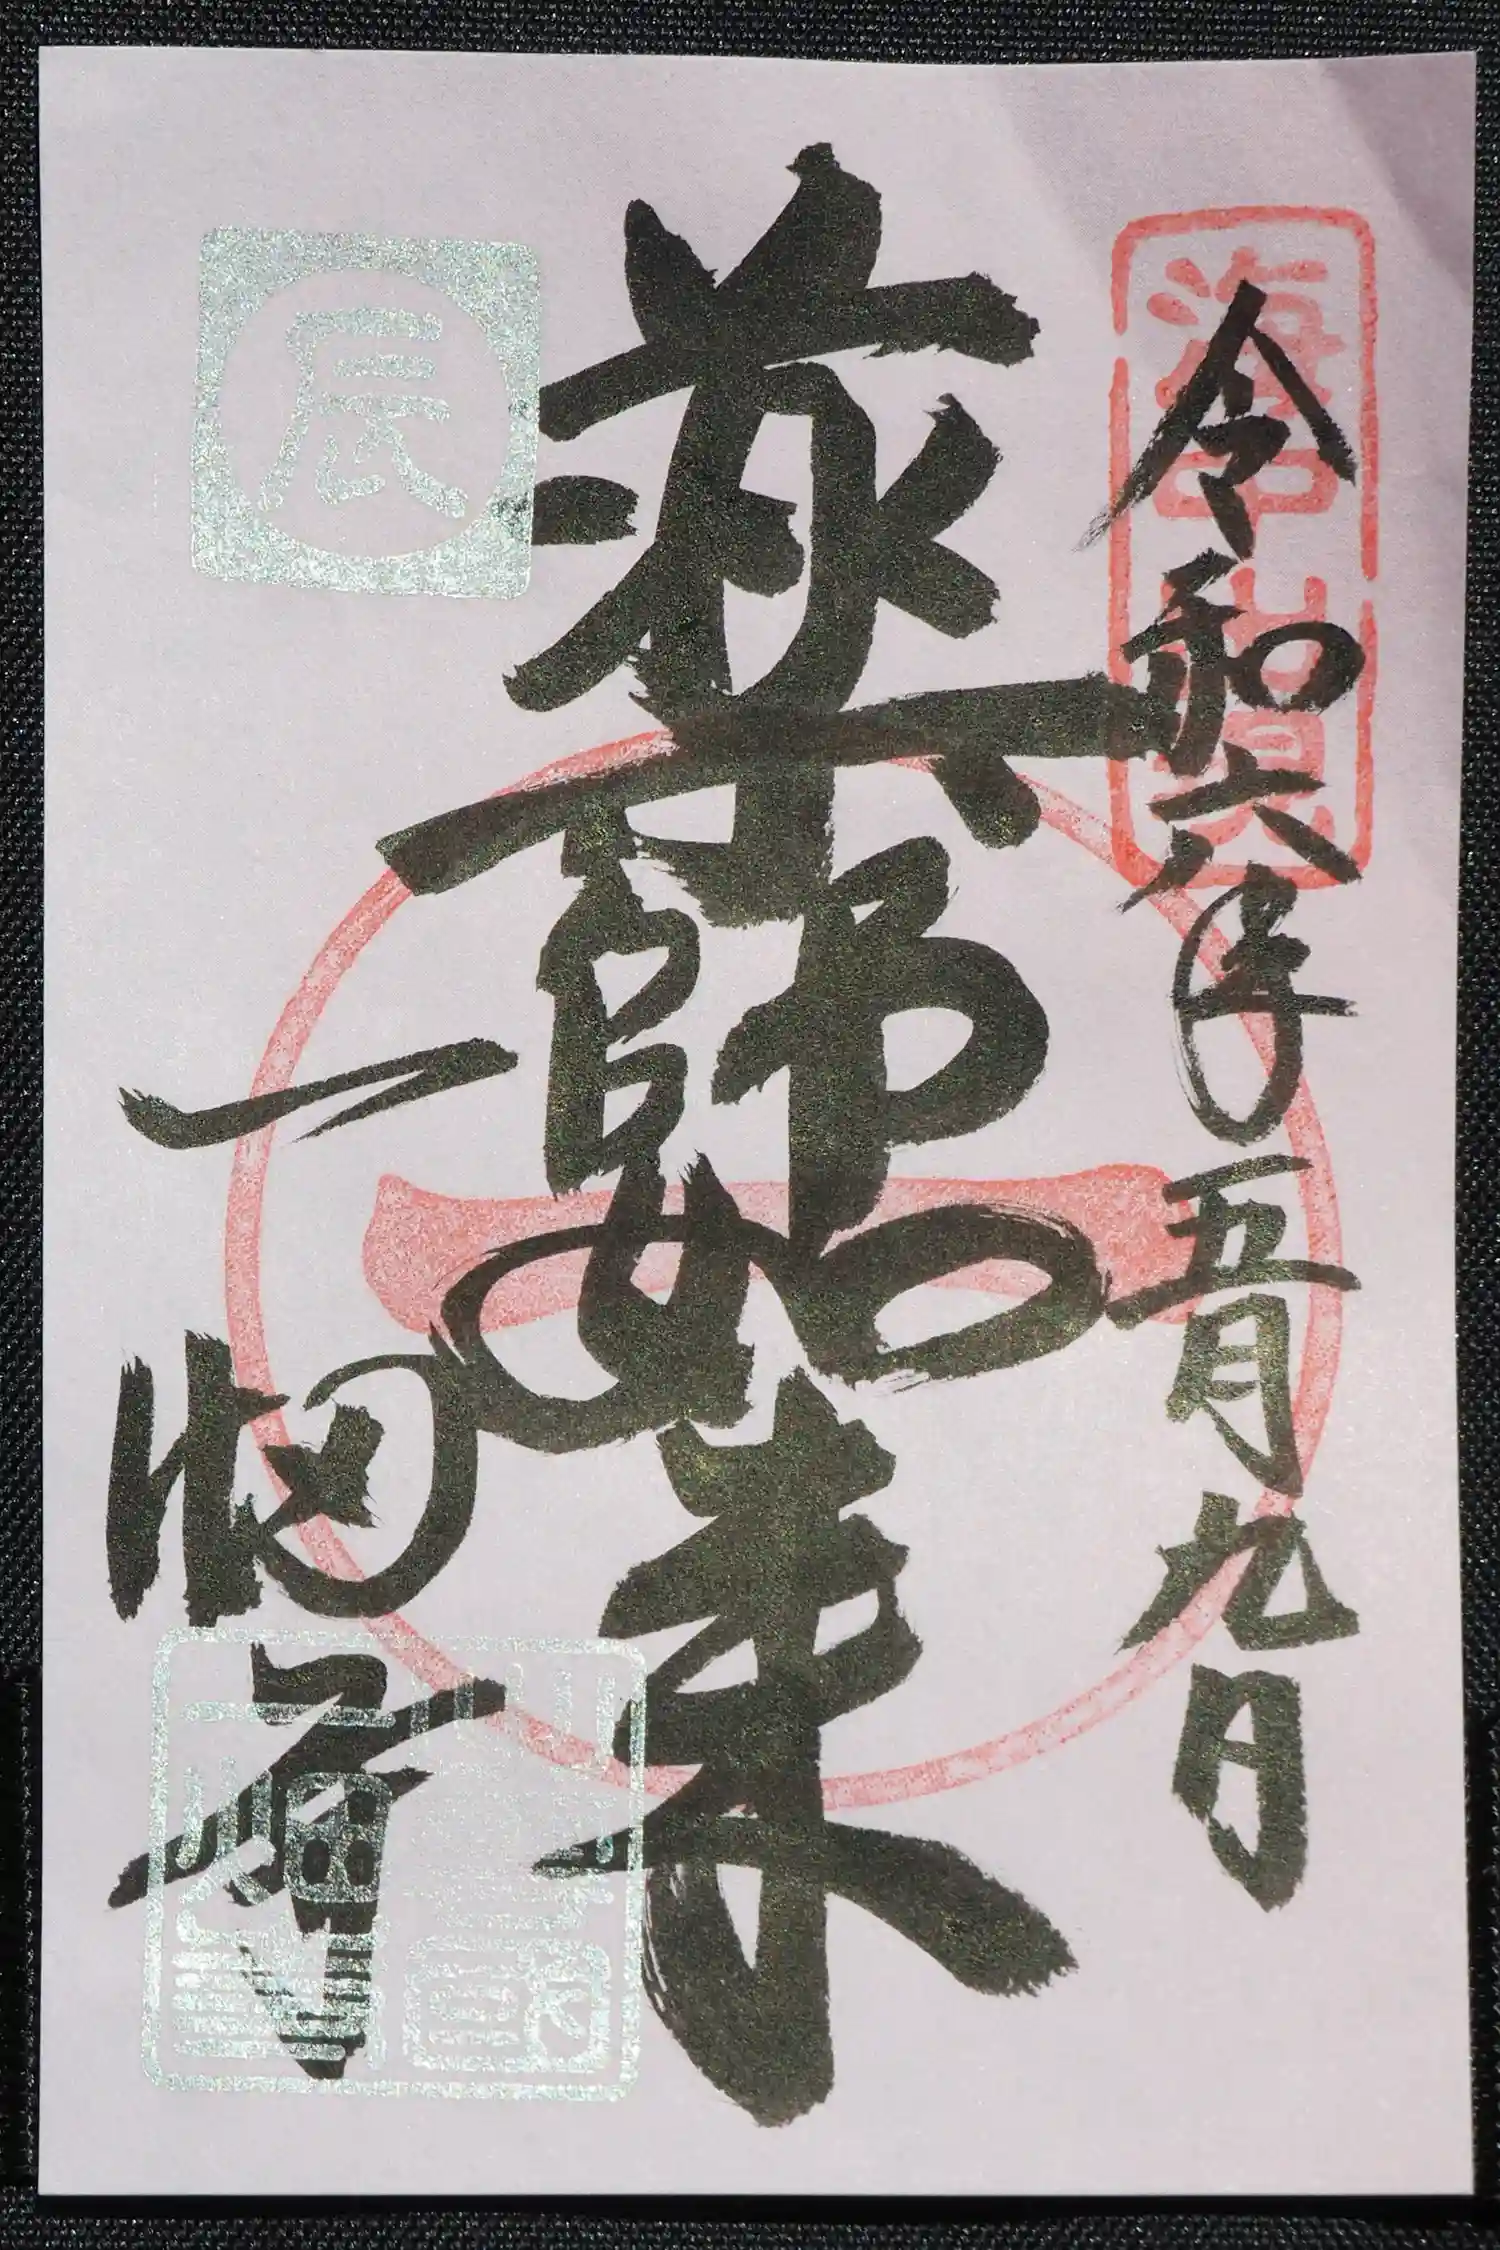 海中出現
令和六年五月九日
薬師如来
辰
一畑寺